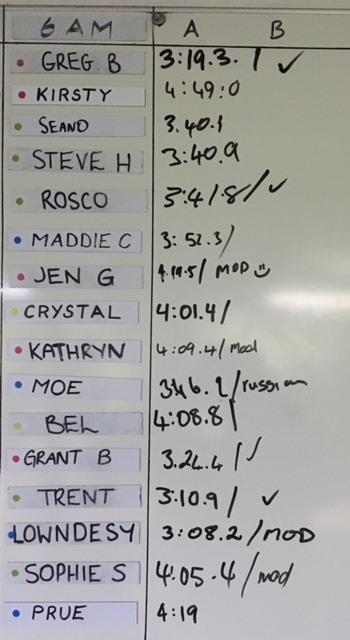 6 AM A B
GREG B 3:19.3. / ✓
KIRSTY 4:49:0
SEANO 3.40.1
STEVE H 3:40.9
ROSCO 3:41.8/ ✓
MADDIE C 3:52.3/
JEN G 4.19.5/ MOD ☺
CRYSTAL 4:01.4/
KATHRYN 4:09.4/ Mod
MOE 346.2/russian
BEL 4:08.8/
GRANT B 3.24.4 / ✓
TRENT 3:10.9 / ✓
LOWNDESY 3:08.2/MOD
SOPHIE S 4:05.4/mod
PRUE 4:19